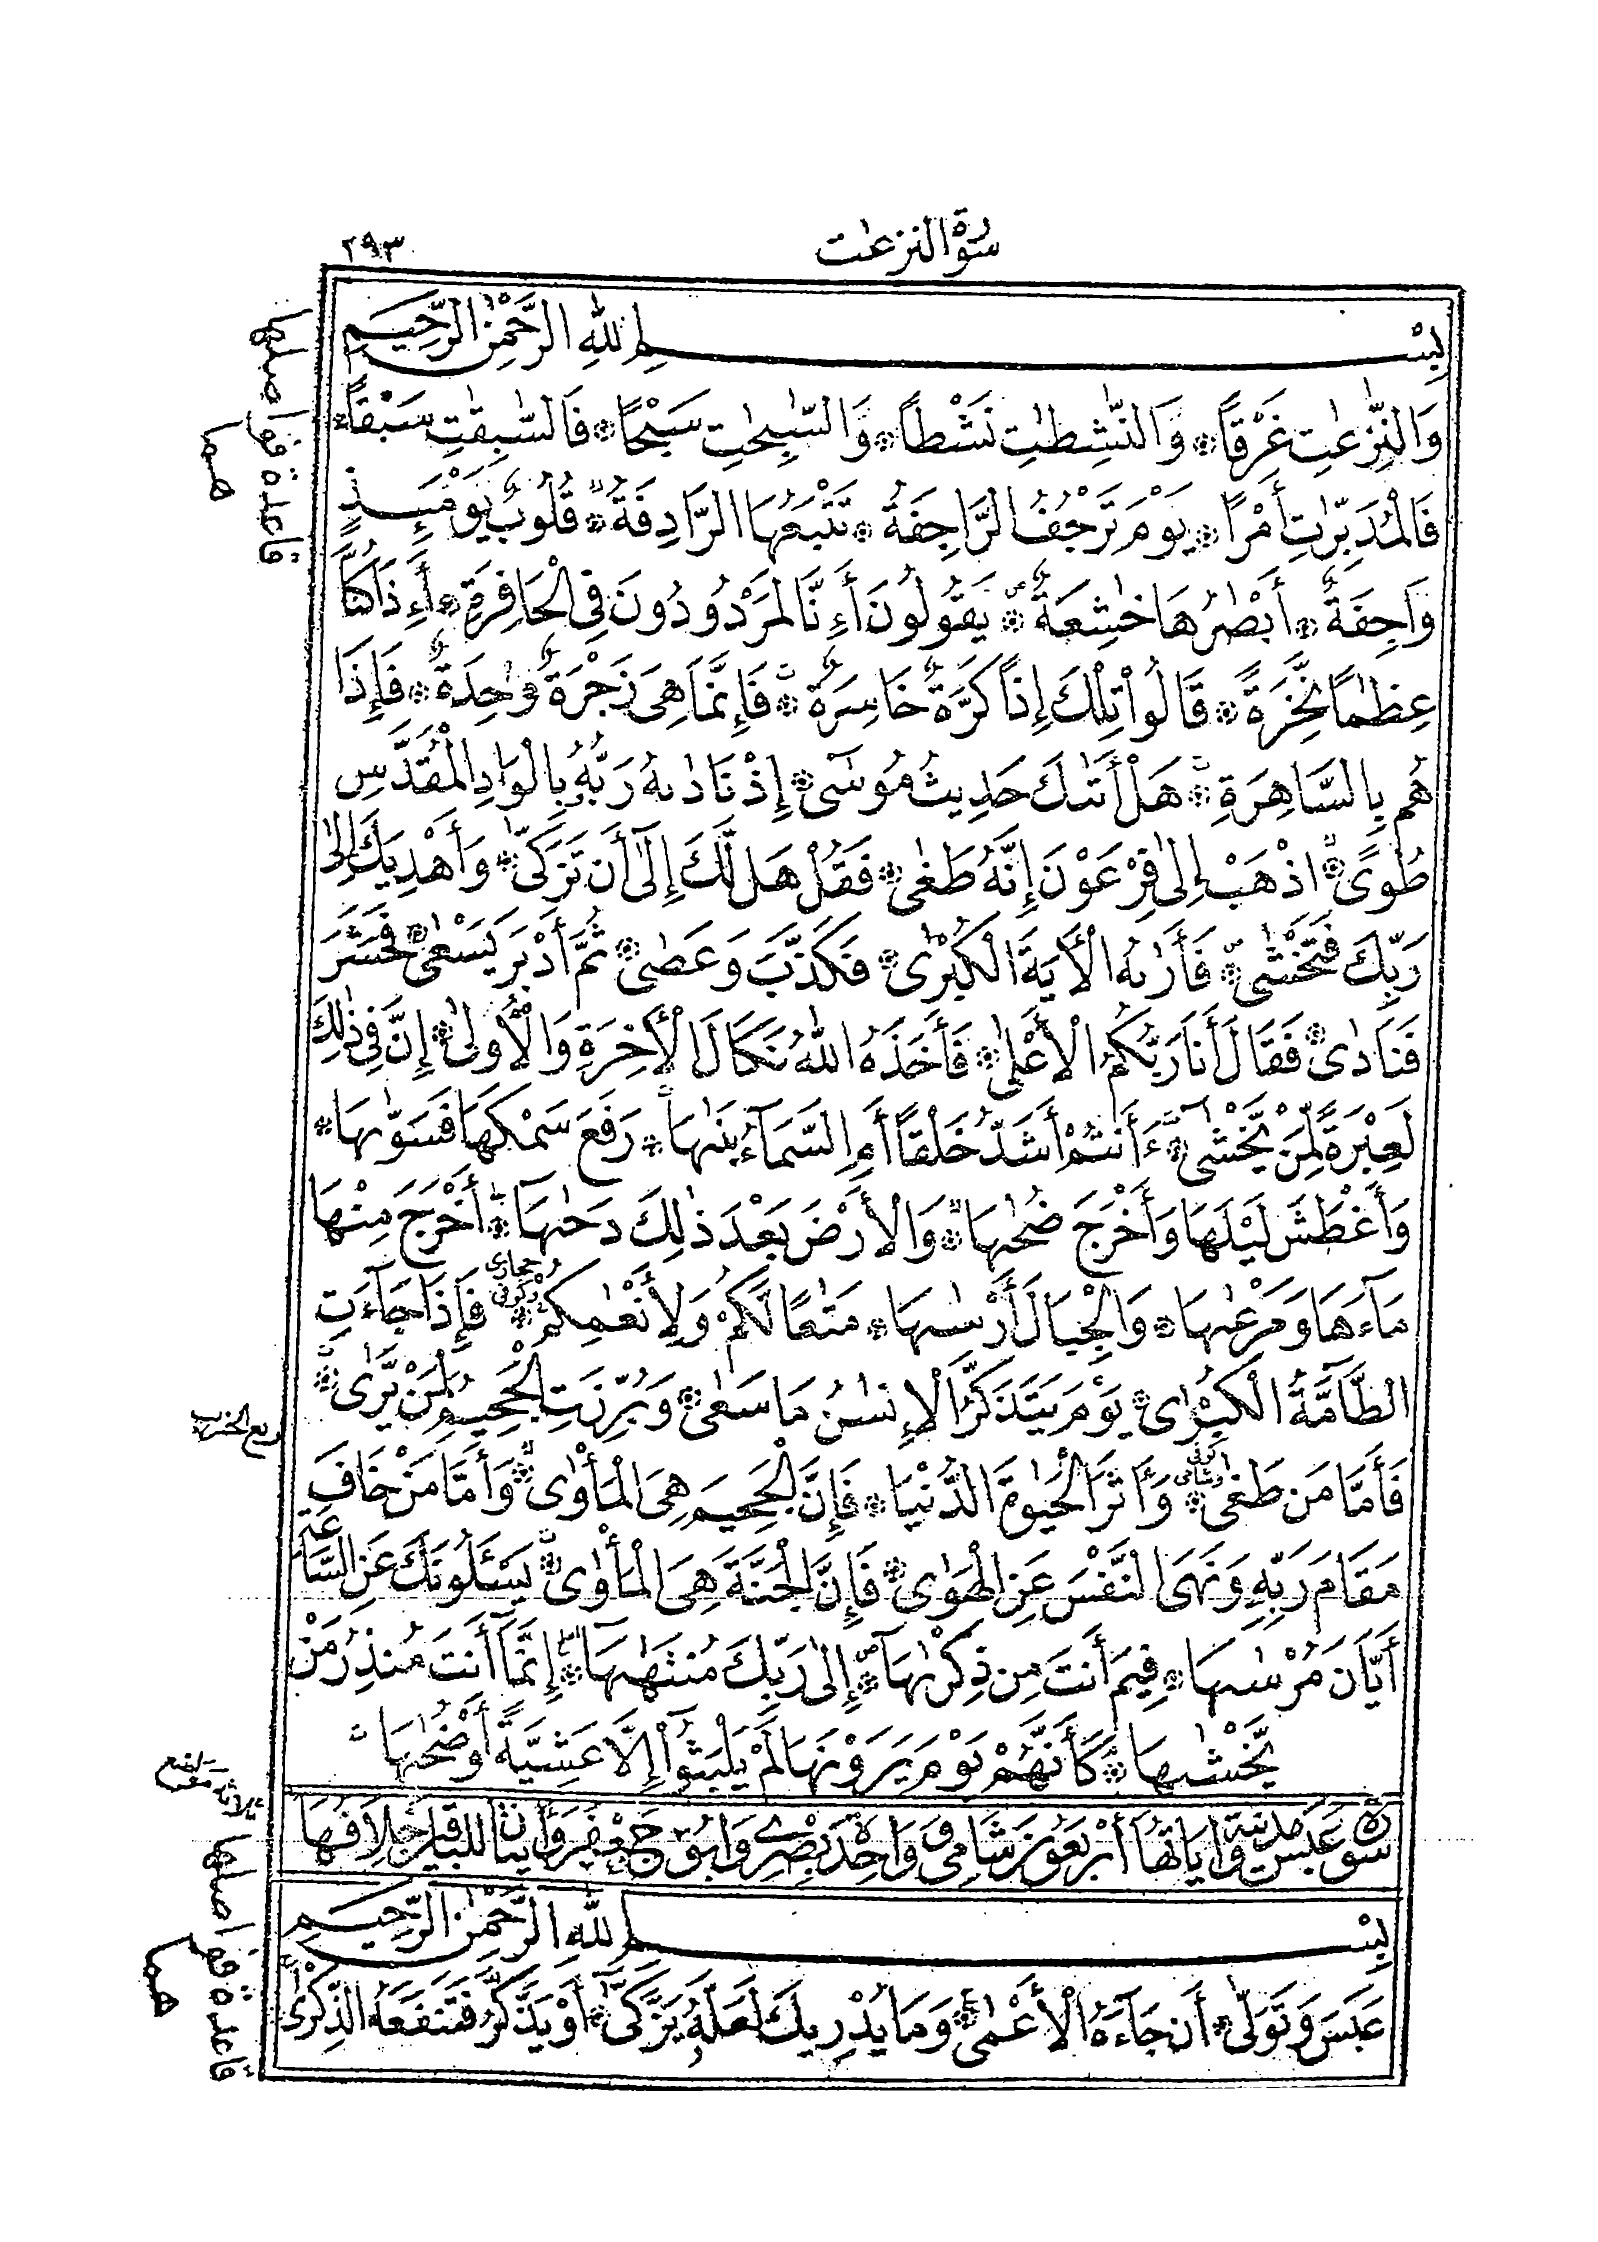 سورة النزعت
٢٩٣
بِسْمِ اللَّهِ الرَّحْمٰنِ الرَّحِيمِ
وَالنّٰزِعٰتِ غَرْقًا ۞ وَالنّٰشِطٰتِ نَشْطًا ۞ وَالسّٰبِحٰتِ سَبْحًا ۞ فَالسّٰبِقٰتِ سَبْقًا ۞
فَالْمُدَبِّرٰتِ أَمْرًا ۞ يَوْمَ تَرْجُفُ الرَّاجِفَةُ ۞ تَتْبَعُهَا الرَّادِفَةُ ۞ قُلُوبٌ يَوْمَئِذٍ
وَاجِفَةٌ ۞ أَبْصٰرُهَا خٰشِعَةٌ ۞ يَقُولُونَ أَءِنَّا لَمَرْدُودُونَ فِي الْحَافِرَةِ ۞ أَءِذَا كُنَّا
عِظٰمًا نَّخِرَةً ۞ قَالُوا تِلْكَ إِذًا كَرَّةٌ خَاسِرَةٌ ۞ فَإِنَّمَا هِيَ زَجْرَةٌ وٰحِدَةٌ ۞ فَإِذَا
هُم بِالسَّاهِرَةِ ۞ هَلْ أَتٰىكَ حَدِيثُ مُوسٰى ۞ إِذْ نَادٰىهُ رَبُّهُ بِالْوَادِ الْمُقَدَّسِ
طُوًى ۞ اذْهَبْ إِلٰى فِرْعَوْنَ إِنَّهُ طَغٰى ۞ فَقُلْ هَل لَّكَ إِلٰٓى أَن تَزَكّٰى ۞ وَأَهْدِيَكَ إِلٰى
رَبِّكَ فَتَخْشٰى ۞ فَأَرٰىهُ الْأٓيَةَ الْكُبْرٰى ۞ فَكَذَّبَ وَعَصٰى ۞ ثُمَّ أَدْبَرَ يَسْعٰى ۞ فَحَشَرَ
فَنَادٰى ۞ فَقَالَ أَنَا رَبُّكُمُ الْأَعْلٰى ۞ فَأَخَذَهُ اللَّهُ نَكَالَ الْأٓخِرَةِ وَالْأُولٰى ۞ إِنَّ فِي ذٰلِكَ
لَعِبْرَةً لِّمَن يَّخْشٰٓى ۞ ءَأَنتُمْ أَشَدُّ خَلْقًا أَمِ السَّمَآءُ بَنٰىهَا ۞ رَفَعَ سَمْكَهَا فَسَوّٰىهَا ۞
وَأَغْطَشَ لَيْلَهَا وَأَخْرَجَ ضُحٰىهَا ۞ وَالْأَرْضَ بَعْدَ ذٰلِكَ دَحٰىهَآ ۞ أَخْرَجَ مِنْهَا
مَآءَهَا وَمَرْعٰىهَا ۞ وَالْجِبَالَ أَرْسٰىهَا ۞ مَتٰعًا لَّكُمْ وَلِأَنْعٰمِكُمْ ۞ فَإِذَا جَآءَتِ
الطَّآمَّةُ الْكُبْرٰى ۞ يَوْمَ يَتَذَكَّرُ الْإِنسٰنُ مَا سَعٰى ۞ وَبُرِّزَتِ الْجَحِيمُ لِمَن يَّرٰى ۞
ربع الحزب
فَأَمَّا مَن طَغٰى ۞ وَءَاثَرَ الْحَيٰوةَ الدُّنْيَا ۞ فَإِنَّ الْجَحِيمَ هِيَ الْمَأْوٰى ۞ وَأَمَّا مَنْ خَافَ
مَقَامَ رَبِّهِ وَنَهَى النَّفْسَ عَنِ الْهَوٰى ۞ فَإِنَّ الْجَنَّةَ هِيَ الْمَأْوٰى ۞ يَسْـَٔلُونَكَ عَنِ السَّاعَةِ
أَيَّانَ مُرْسٰىهَا ۞ فِيمَ أَنتَ مِن ذِكْرٰىهَآ ۞ إِلٰى رَبِّكَ مُنتَهٰىهَآ ۞ إِنَّمَآ أَنتَ مُنذِرُ مَنْ
يَّخْشٰىهَا ۞ كَأَنَّهُمْ يَوْمَ يَرَوْنَهَا لَمْ يَلْبَثُوٓا إِلَّا عَشِيَّةً أَوْ ضُحٰىهَا
سورة عبس مدنية وآياتها أربعون شامي وواحدة بصري وأبو جعفر
بِسْمِ اللَّهِ الرَّحْمٰنِ الرَّحِيمِ
عَبَسَ وَتَوَلّٰٓى ۞ أَن جَآءَهُ الْأَعْمٰى ۞ وَمَا يُدْرِيكَ لَعَلَّهُ يَزَّكّٰٓى ۞ أَوْ يَذَّكَّرُ فَتَنفَعَهُ الذِّكْرٰى